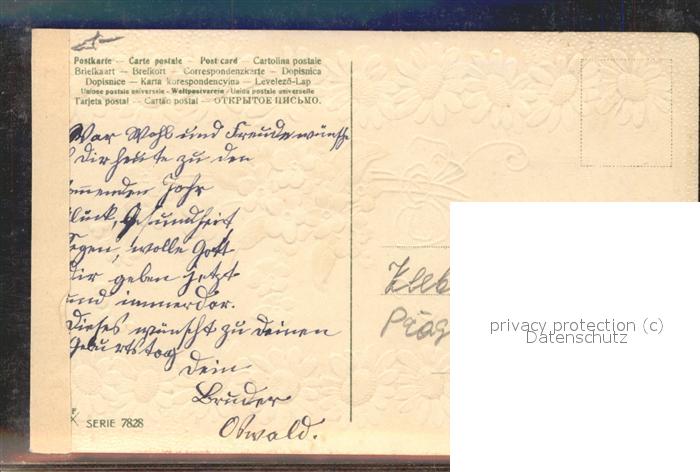 Postkarte — Carte postale — Post card — Cartolina postale
Briefkaart — Brefkort — Correspondenzkarte — Dopisnica
Dopisnice — Karta korespondencyjna — Levelező-Lap
Unione postale universale — Weltpostverein — Union postale universelle
Tarjeta postal — Cartão postal — ОТКРЫТОЕ ПИСЬМО.
Wohl und Freude wünsche
Dir heute zu den
mmenden Jahr
lück, Gesundheit,
egen, wolle Gott
dir geben jetzt
und immerdar.
Dieses wünscht zu deinen
Geburtstag
Dein
Bruder
Oswald.
SERIE 7828
privacy protection (c)
Datenschutz